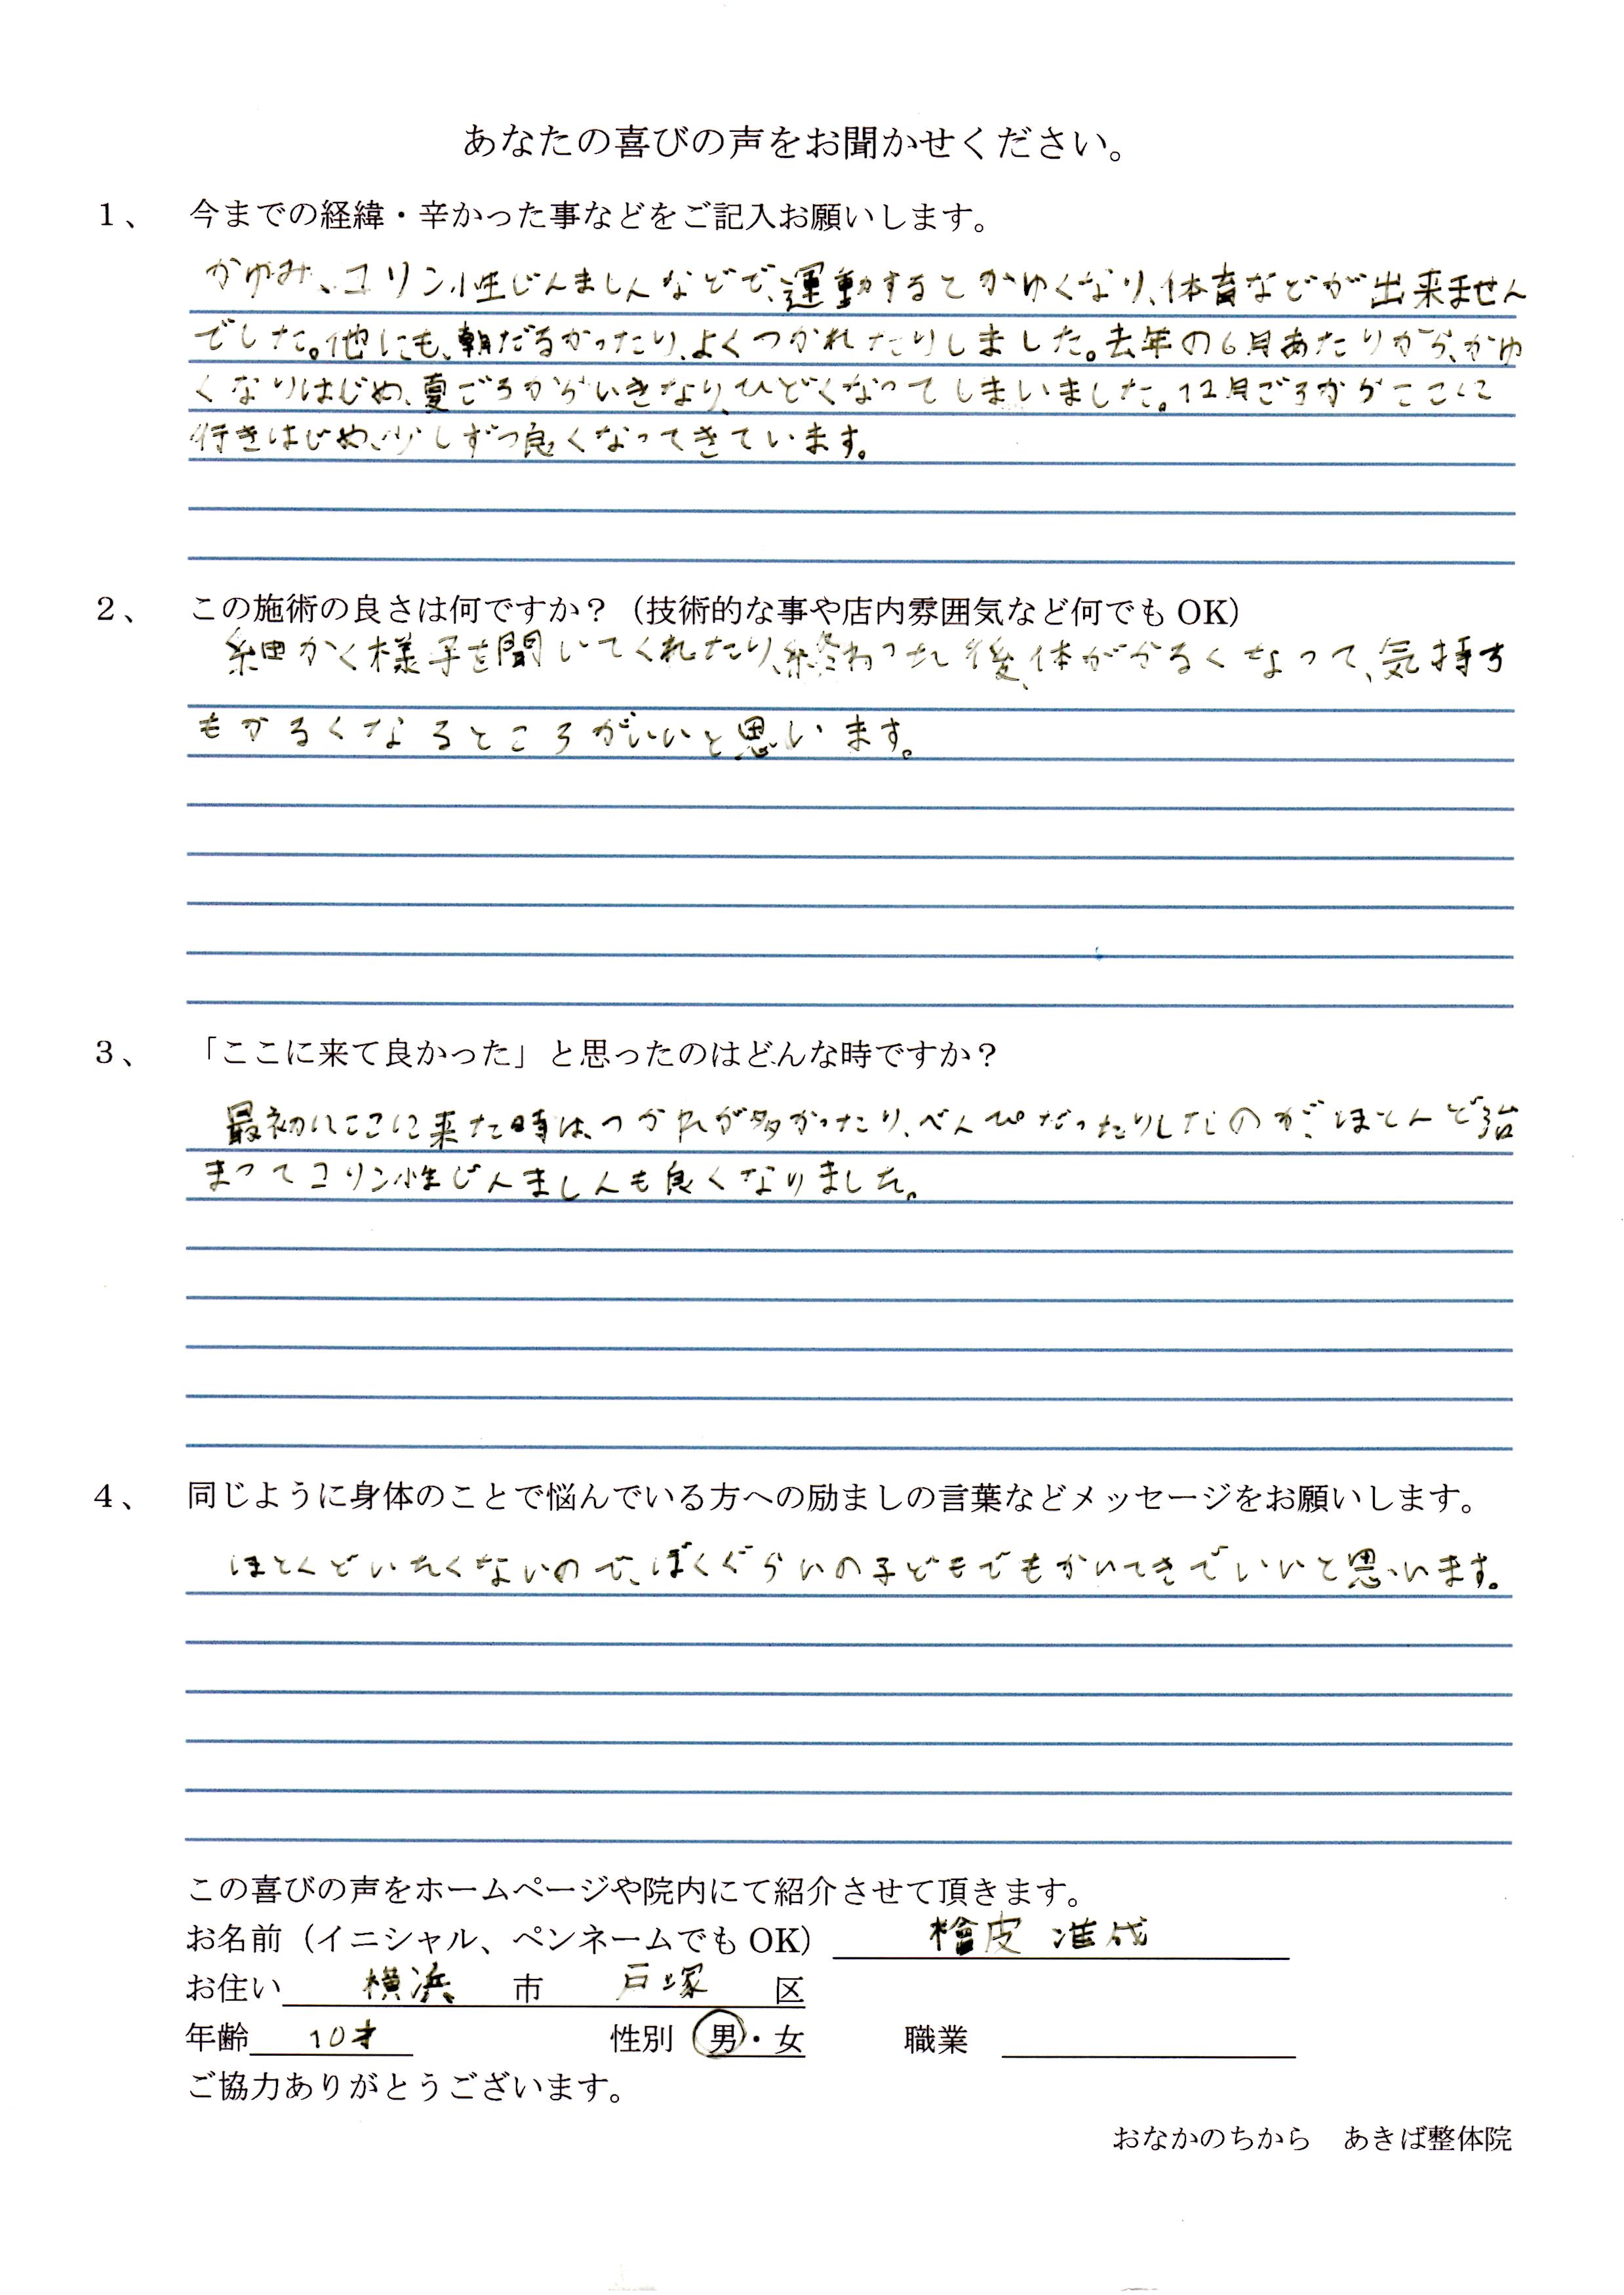 あなたの喜びの声をお聞かせください。
１、 今までの経緯・辛かった事などをご記入お願いします。
かゆみ、コリン性じんましんなどで、運動するとかゆくなり、体育などが出来ません
でした。他にも、朝だるかったり、よくつかれたりしました。去年の6月あたりから、かゆ
くなりはじめ、夏ごろからいきなり、ひどくなってしまいました。12月ごろからここに
行きはじめ、少しずつ良くなってきています。
２、 この施術の良さは何ですか？（技術的な事や店内雰囲気など何でも OK）
細かく様子を聞いてくれたり、終わった後、体がかるくなって、気持ち
もかるくなるところがいいと思います。
３、 「ここに来て良かった」と思ったのはどんな時ですか？
最初にここに来た時は、つかれが多かったり、べんぴだったりしたのが、ほとんど治
まってコリン性じんましんも良くなりました。
４、 同じように身体のことで悩んでいる方への励ましの言葉などメッセージをお願いします。
ほとんどいたくないので、ぼくぐらいの子どもでもかいてきでいいと思います。
この喜びの声をホームページや院内にて紹介させて頂きます。
お名前（イニシャル、ペンネームでも OK） 檜皮 准成
お住い 横浜 市 戸塚 区
年齢 10才 性別 男・女 職業
ご協力ありがとうございます。
おなかのちから あきば整体院